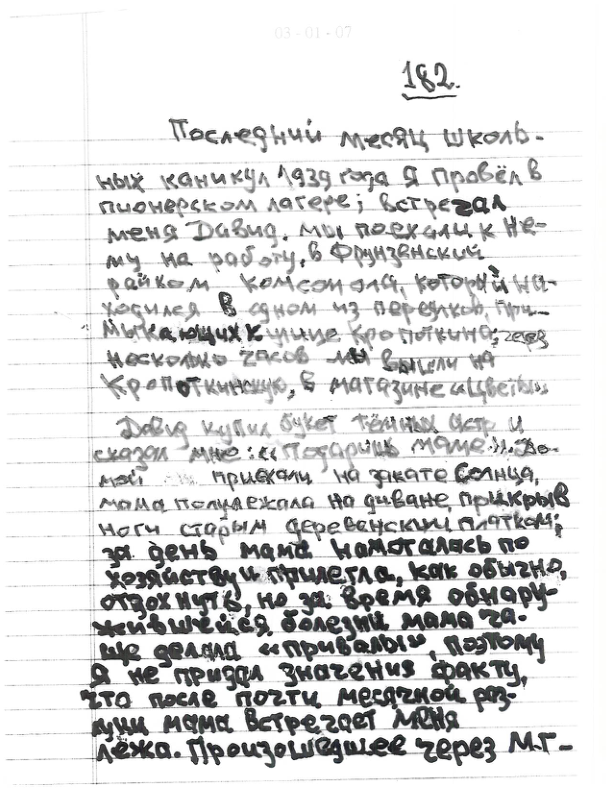 03 - 01 - 07
182.
Последний месяц школь-
ных каникул 1939 года я провёл в
пионерском лагере; встречал
меня Давид. мы поехали к не-
му на работу, в Фрунзенский
райком комсомола, который на-
ходился в одном из переулков, при-
мыкающих к улице Кропоткина; через
несколько часов мы вышли на
Кропоткинскую, в магазине «Цветы»
Давид купил букет тёмных астр и
сказал мне: «Подаришь маме». До-
мой приехали на закате Солнца,
мама полулежала на диване, прикрыв
ноги старым деревенским платком;
за день мама намоталась по
хозяйству и прилегла, как обычно,
отдохнуть, но за время обнару-
жившейся болезни мама ча-
ще делала «привалы», поэтому
я не придал значения факту,
что после почти месячной раз-
луки мама встречает меня
лёжа. Произошедшее через м.г-